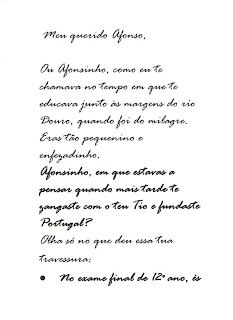 Meu querido Afonso,
Ou Afonsinho, como eu te
chamava no tempo em que te
educava junto às margens do rio
Douro, quando foi do milagre.
Eras tão pequenino e
enfezadinho.
Afonsinho, em que estavas a
pensar quando mais tarde te
zangaste com o teu Tio e fundaste
Portugal?
Olha só no que deu essa tua
travessura:
● No exame final de 12º ano, és